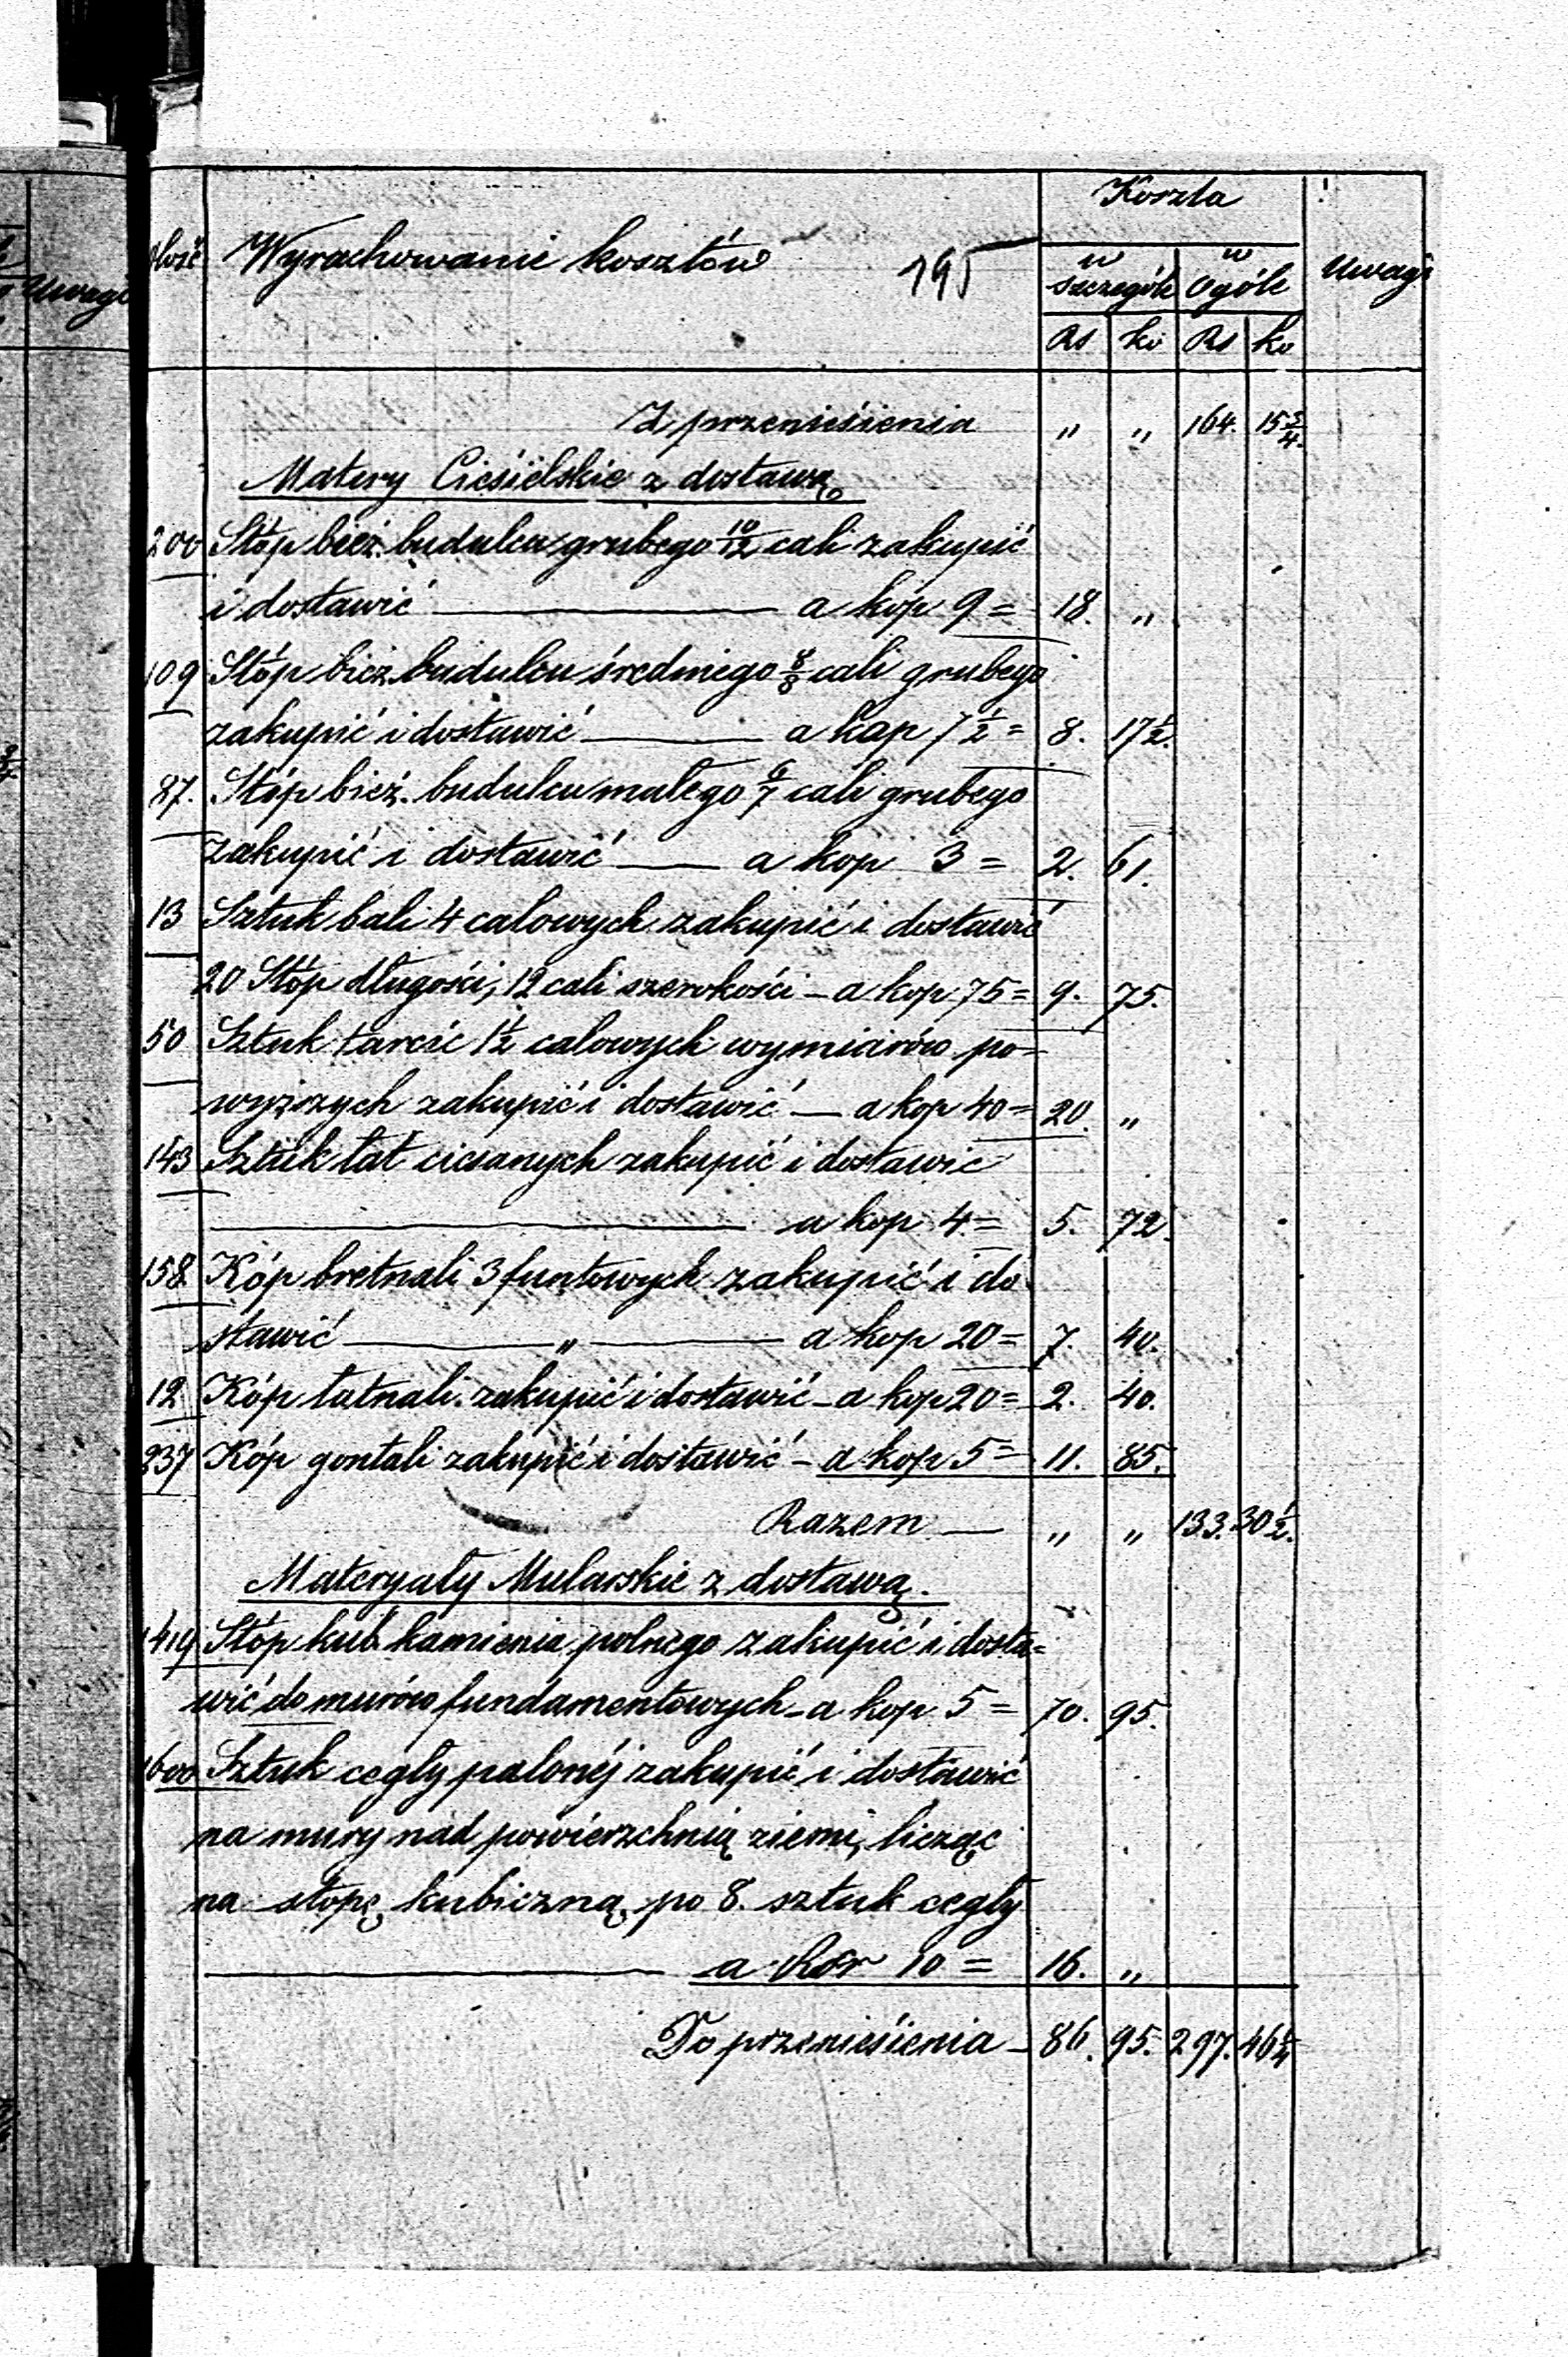 Koszta
Ilość Wyrachowanie kosztów 195 w szczególe w Ogóle Uwagi
Rs ko Rs ko
Z przeniesienia " " 164. 15 3/4.
Matery Ciesielskie z dostawą
200 Stóp bież. budulcu grubego 10/12 cali zakupić
i dostawić — a kop 9 = 18. "
109 Stóp bież budulcu średniego 8/8 cali grubego
zakupić i dostawić — a kop 7 1/2 = 8. 17 1/2.
87. Stóp bież. budulcu małego 6/7 cali grubego
zakupić i dostawić — a kop 3 = 2. 61.
13 Sztuk bali 4 calowych zakupić i dostawić
20 Stóp długości, 12 cali szerokości — a kop 75 = 9. 75.
50 Sztuk tarcic 1 1/2 calowych wymiarów po=
wyższych zakupić i dostawić — a kop 40 = 20. "
143 Sztuk łat ciesanych zakupić i dostawić
— a kop 4 = 5. 72.
158 Kóp bretnali 3 funtowych zakupić i do
stawić — " — a kop 20 = 7. 40.
12 Kóp łatnali zakupić i dostawić — a kop 20 = 2. 40.
237 Kóp gontali zakupić i dostawić — a kop 5 = 11. 85.
Razem — " " 133. 30 1/2.
Materyały Mularskie z dostawą.
1419 Stóp kub. kamienia polnego zakupić i dosta=
wić do murów fundamentowych — a kop 5 = 70. 95.
1600 Sztuk cegły palonéj zakupić i dostawić
na mury nad powierzchnią ziemi, licząc
na stopę kubiczną po 8. sztuk cegły
— a 10 = 16. "
Do przeniesienia — 86. 95. 297. 46 1/4